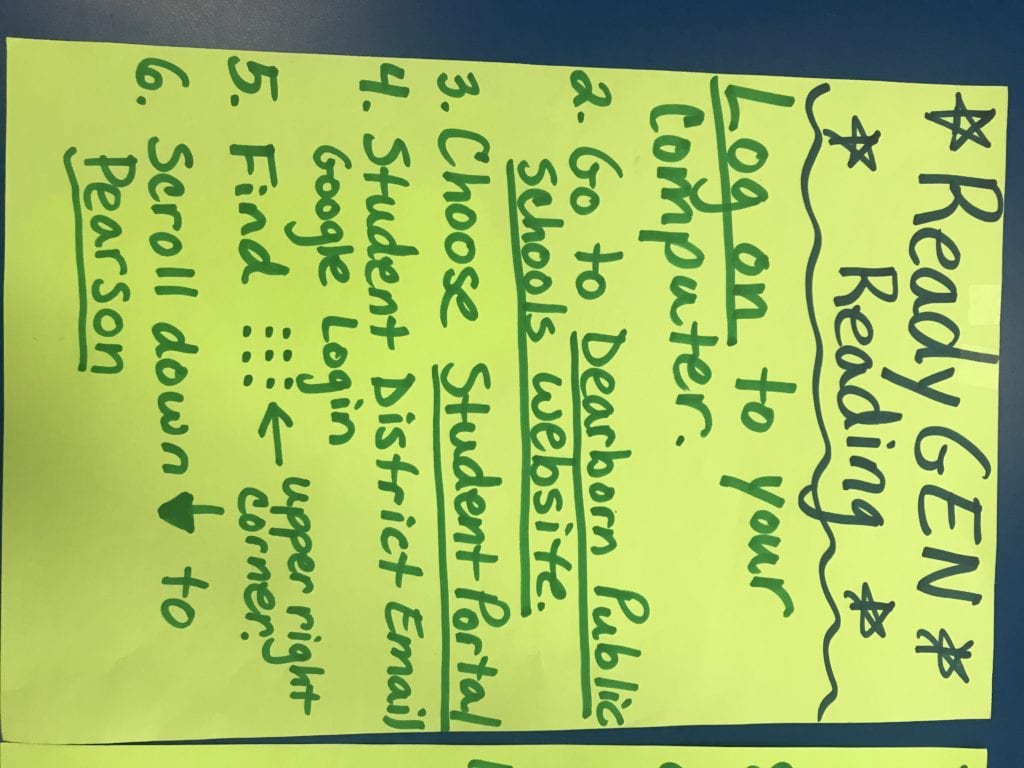 ☆ ReadyGEN ☆
☆ Reading ☆
Log on to your
Computer.
2. Go to Dearborn Public
Schools website.
3. Choose Student Portal
4. Student District Email
Google Login
5. Find ← upper right
corner!
6. Scroll down ↓ to
Pearson